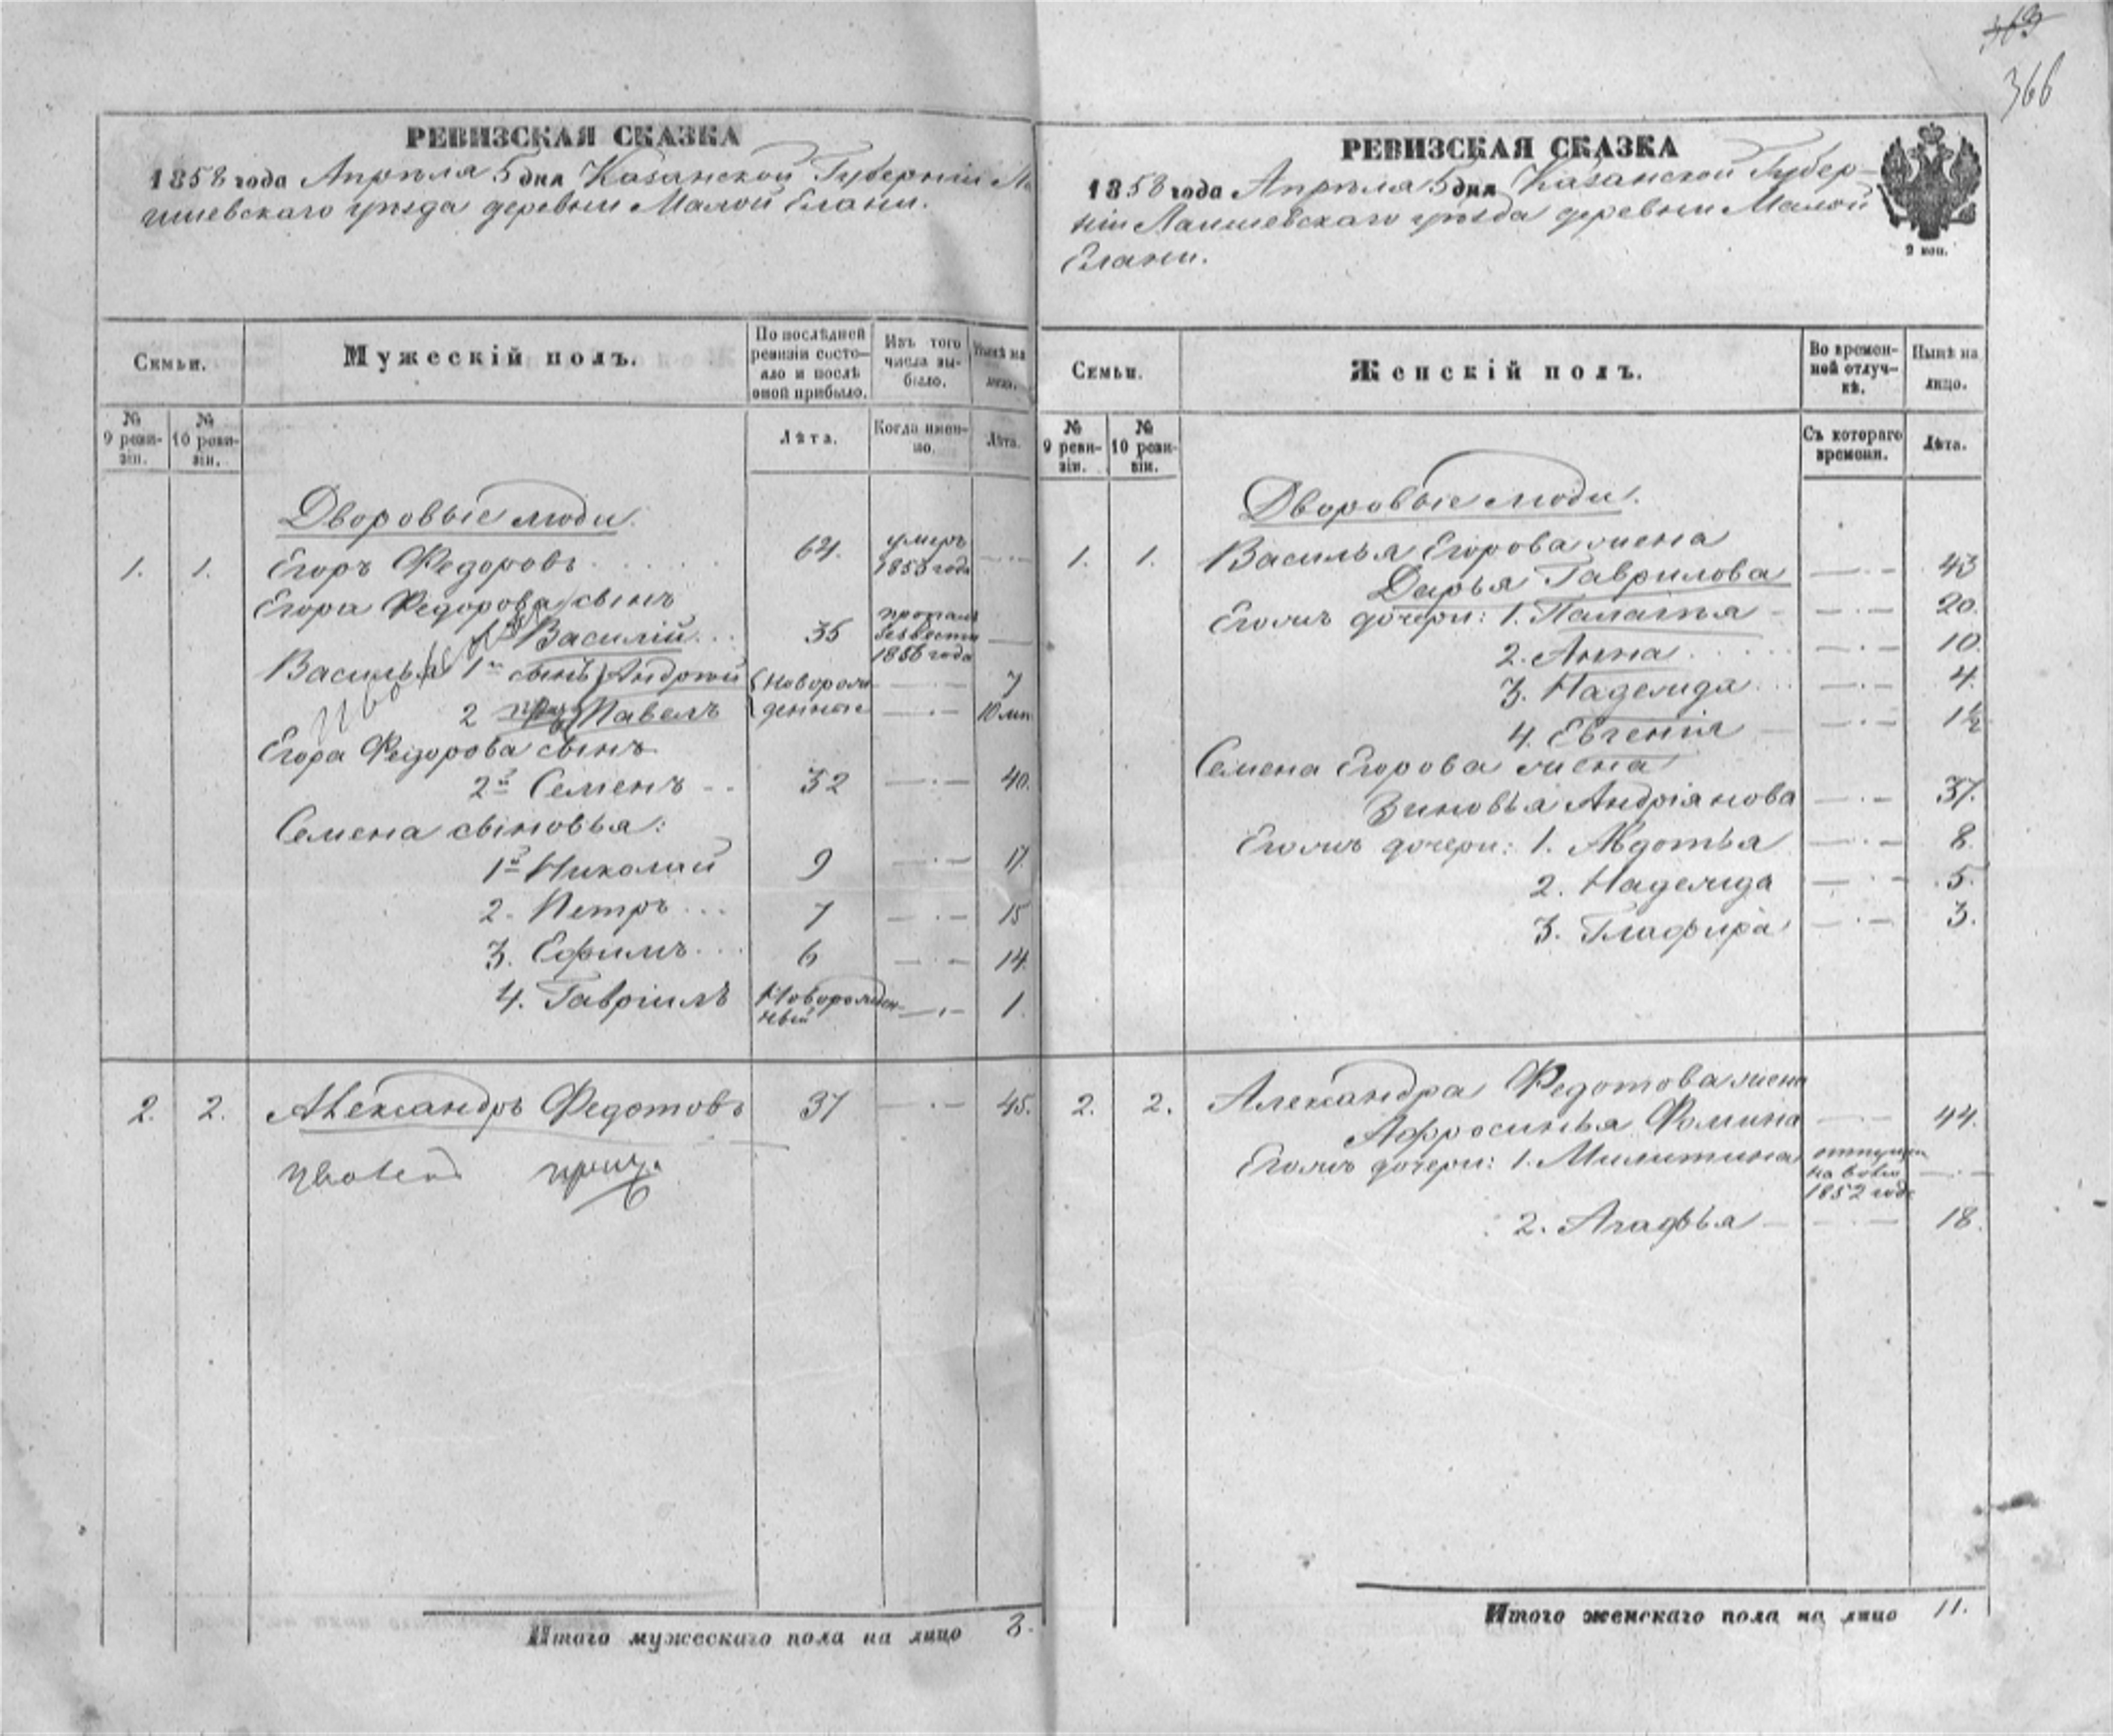 363
366
РЕВИЗСКАЯ СКАЗКА
1858 года Апрѣля 5 дня Казанской Губерніи Ла
ишевскаго уѣзда деревни Малой Елани.
Семьи.
Мужескій полъ.
По послѣдней
ревизіи состо-
яло и послѣ
оной прибыло.
Изъ того
числа вы-
было.
Нынѣ на
лицо.
№
9 реви-
зіи.
№
10 реви-
зіи.
Лѣта.
Когда имен-
но.
Лѣта.
Дворовые люди.
1. 1. Егоръ Федоровъ 64. умеръ
1855 года
Егора Федорова сынъ
1й Василій 35 пропалъ
безвести
1856 года
Василья 1й сынъ Андрей Новорож- 7
2 Павелъ денные 10 мѣ.
Егора Федорова сынъ
2й Семенъ 32 40.
Семена сыновья:
1й Николай 9 17.
2. Петръ 7 15
3. Ефимъ 6 14.
4. Гавріилъ Новорожден-
ный 1.
2. 2. Александръ Федотовъ 37 45.
Итого мужескаго пола на лицо 8.
РЕВИЗСКАЯ СКАЗКА
1858 года Апрѣля 5 дня Казанской Губер-
ніи Лаишевскаго уѣзда деревни Малой
Елани.
2 коп.
Семьи.
Женскій полъ.
Во времен-
ной отлуч-
кѣ.
Нынѣ на
лицо.
№
9 реви-
зіи.
№
10 реви-
зіи.
Съ котораго
времени.
Лѣта.
Дворовые люди.
1. 1. Василья Егорова жена
Дарья Гаврилова 43
Егожъ дочери: 1. Палагѣя 20.
2. Анна 10.
3. Надежда 4.
4. Евгенія 1½
Семена Егорова жена
Зиновья Андріянова 37.
Егожъ дочери: 1. Авдотья 8.
2. Надежда 5.
3. Глафира 3.
2. 2. Александра Федотова жена
Афросинья Фомина 44.
Егожъ дочери: 1. Милитина отпущен
на волю
1852 года
2. Агафья 18.
Итого женскаго пола на лицо 11.